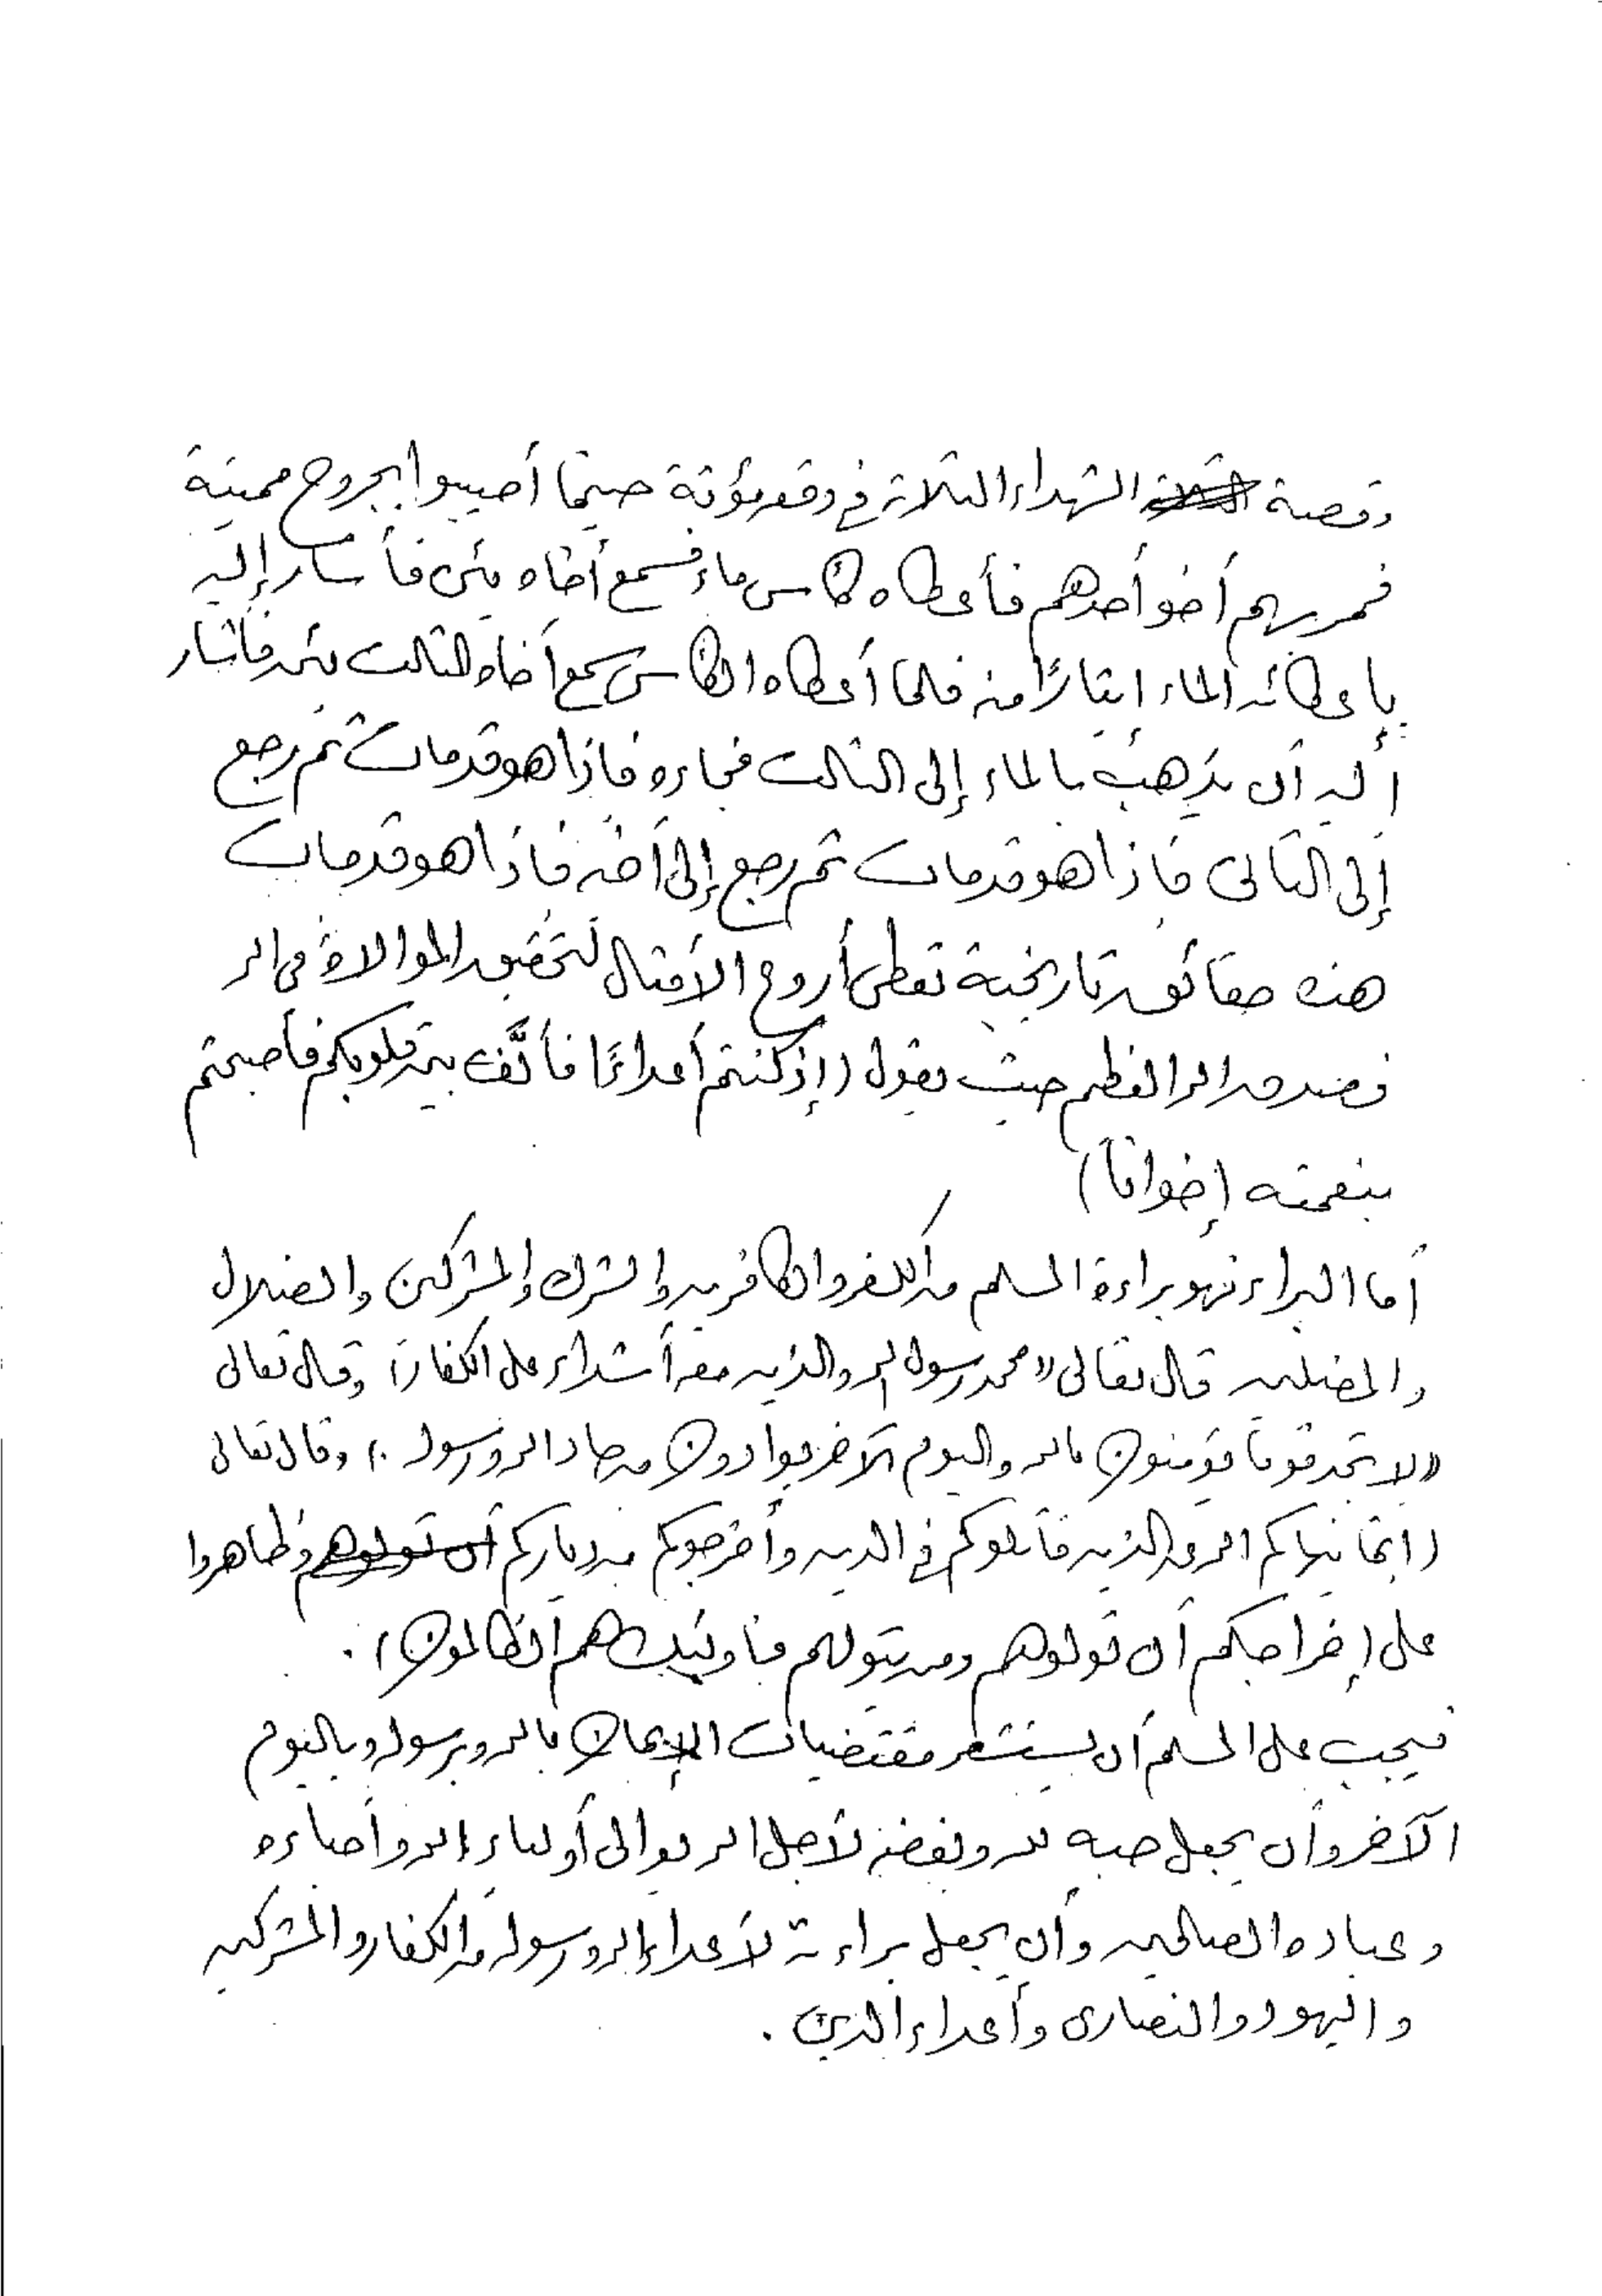 وقصة الشهداء الثلاثة في وقعة مؤتة حينما أصيبوا بجروح مميتة
فمر بهم أخو أحدهم فأعطاه كأس ماء فسمع أخاه يئن فأشار إليه
بإعطائه الماء إيثارًا منه فلما أعطاه الكأس سمع أخاه الثالث يئن فأشار
إليه أن يذهب بالماء إلى الثالث فجاءه فإذا هو قد مات ثم رجع
إلى الثاني فإذا هو قد مات ثم رجع إلى أخيه فإذا هو قد مات
هذه حقائق تاريخية تعطي أروع الأمثال لتحقيق الموالاة في الله
فصدق الله العظيم حيث يقول (إذ كنتم أعداءًا فألَّف بين قلوبكم فأصبحتم
بنعمته إخوانًا)
أما البراء فهو براءة المسلم من الكفر والكافرين والشرك والمشركين والضلال
والمضلين قال تعالى «محمد رسول الله والذين معه أشداء على الكفار» وقال تعالى
«لا تجد قومًا يؤمنون بالله واليوم الآخر يوادون من حاد الله ورسوله» وقال تعالى
(إنما ينهاكم الله عن الذين قاتلوكم في الدين وأخرجوكم من دياركم وظاهروا
على إخراجكم أن تولوهم ومن يتولهم فأولئك هم الظالمون).
فيجب على المسلم أن يستشعر مقتضيات الإيمان بالله وبرسوله وباليوم
الآخر وأن يجعل حبه لله وبغضه لأجل الله يوالي أولياء الله وأحباءه
وعباده الصالحين وأن يجعل براءته لأعداء الله ورسوله من الكفار والمشركين
واليهود والنصارى وأعداء الدين.